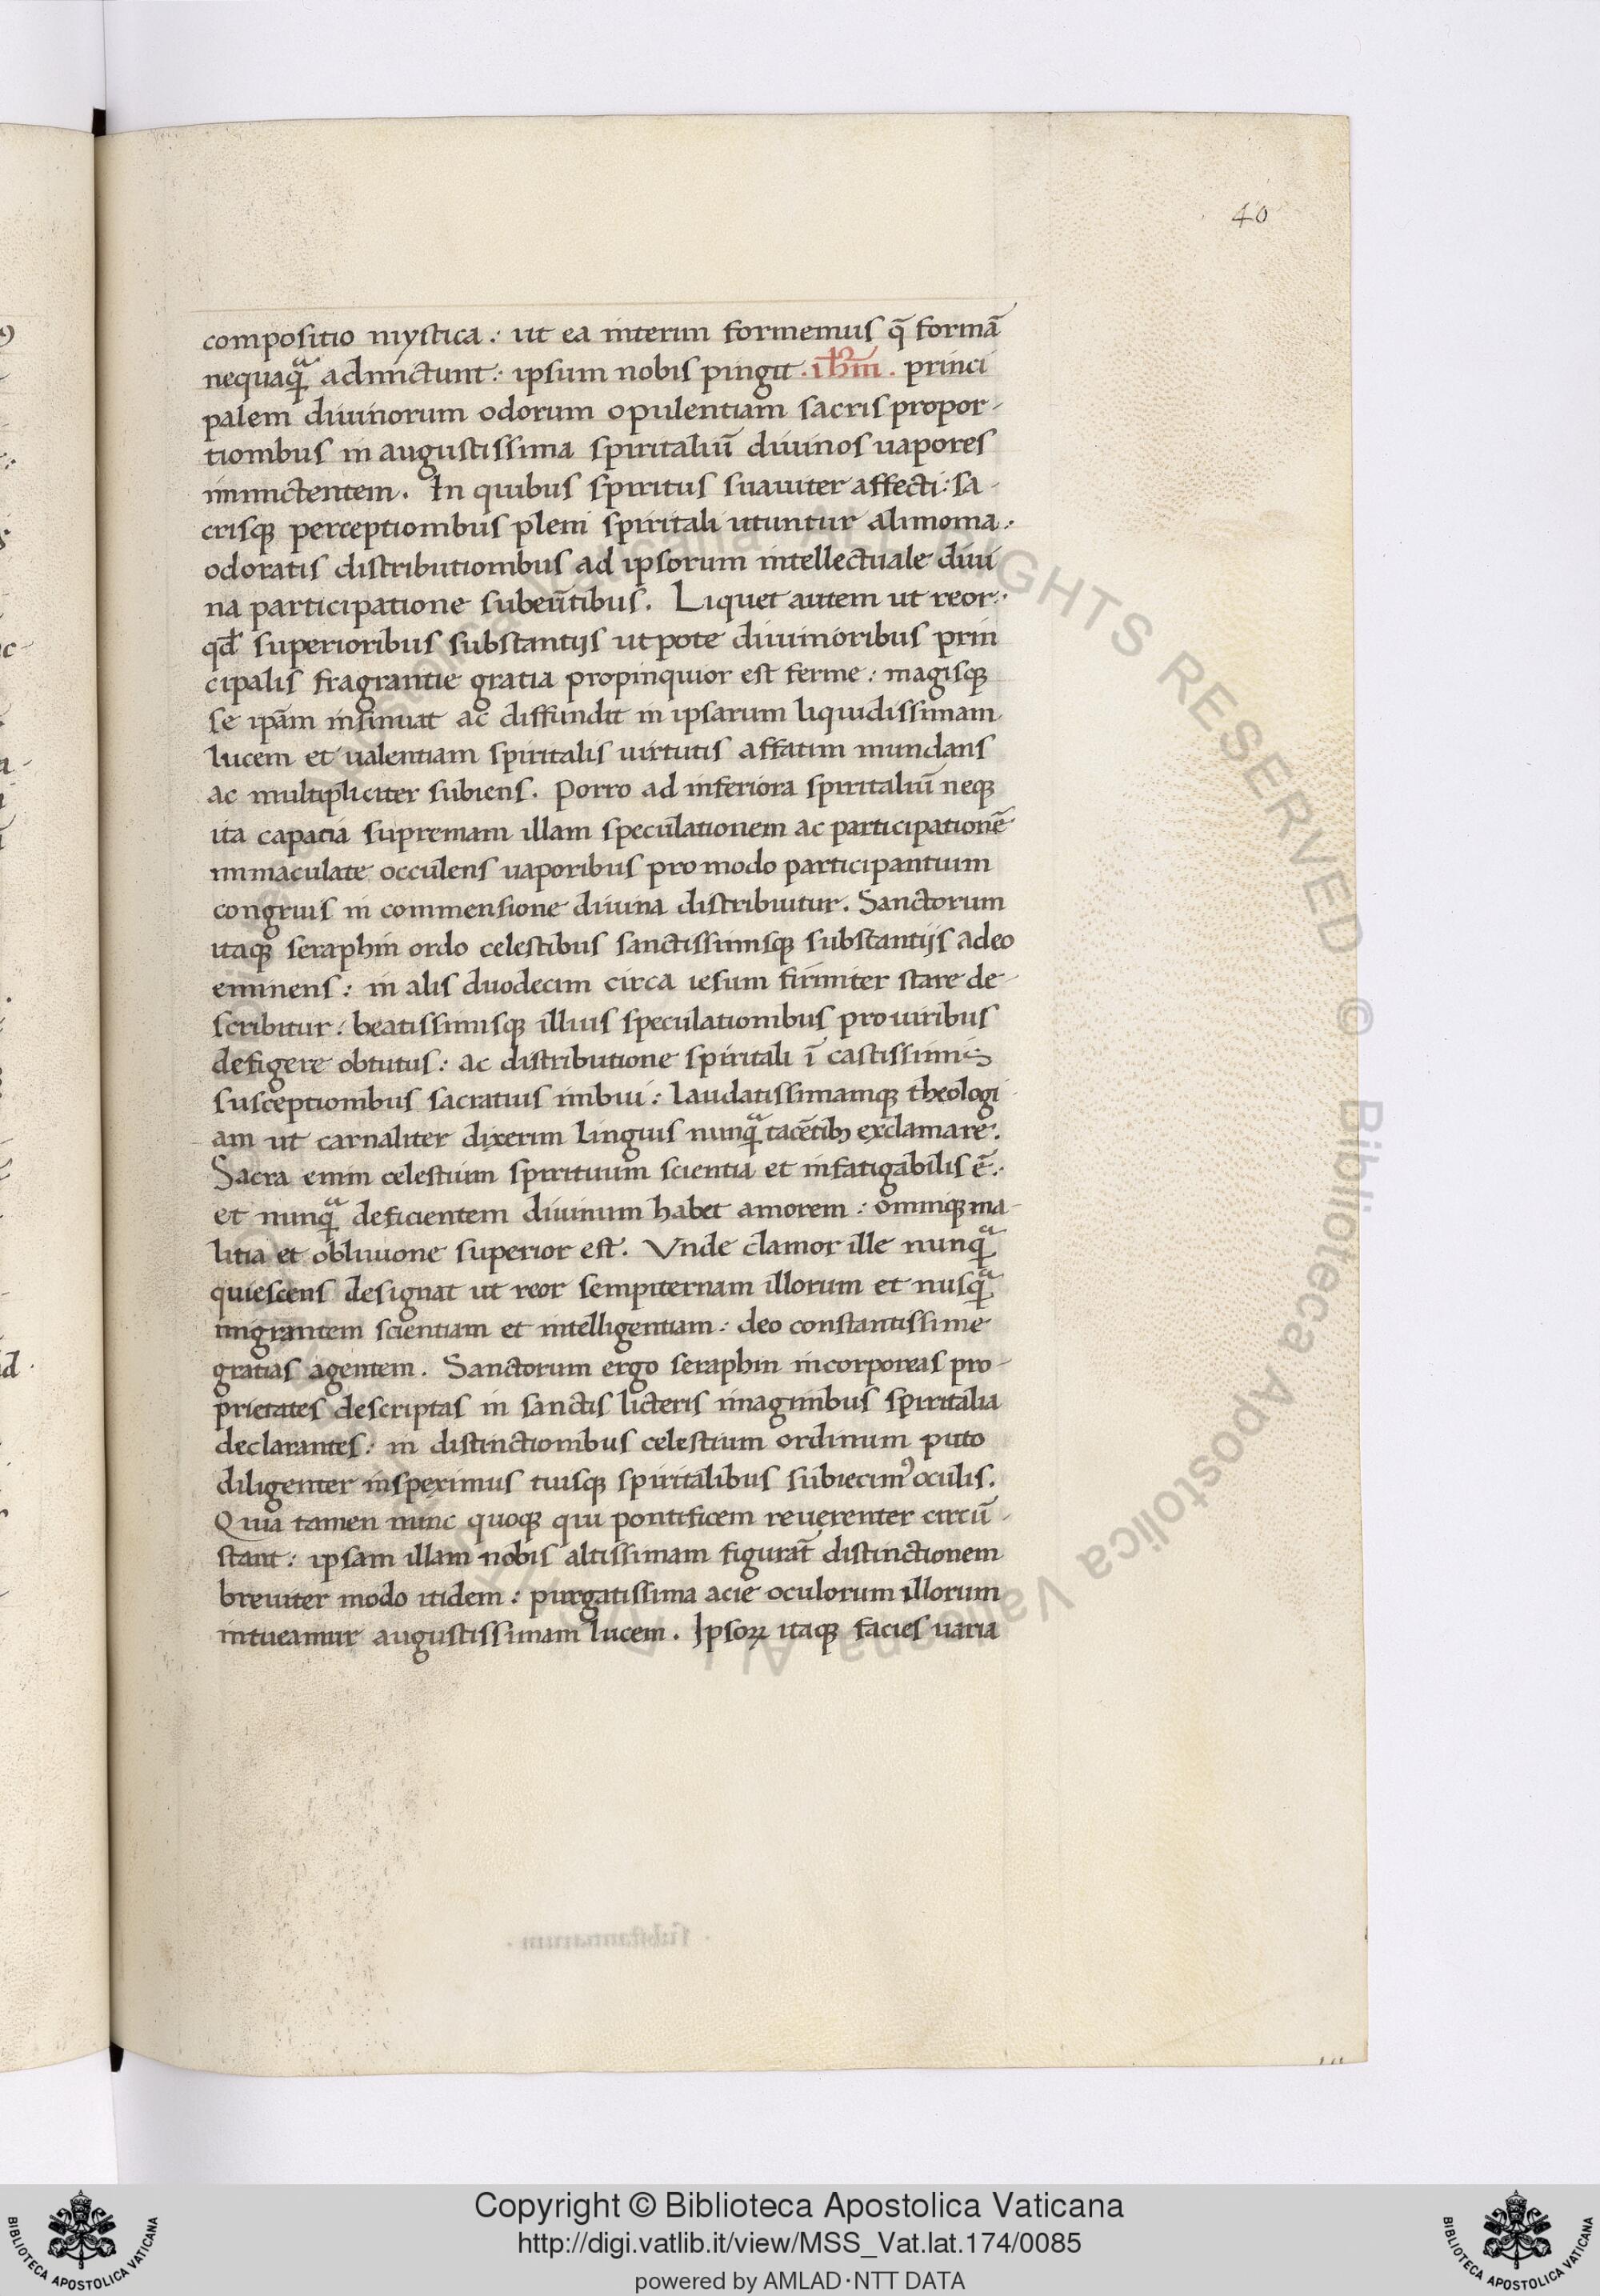 40
compositio mystica: ut ea interim formemus q̄ formā
nequaq̃ adnictunt: ipsum nobis pingit .ihm̄. princi
palem diuinorum odorum opulentiam sacris propor-
tionibus in augustissima spiritaliū diuinos uapores
inmictentem. In quibus spiritus suauiter affecti: sa-
crisq perceptionibus pleni spiritali utuntur alimonia:
odoratis distributionibus ad ipsorum intellectuale diui
na participatione subeūtibus. Liquet autem ut reor:
qđ superioribus substantijs utpote diuinioribus prin
cipalis fragrantie gratia propinquior est ferme: magisq
se ipām insinuat ac diffundit in ipsarum liquidissimam
lucem et ualentiam spiritalis uirtutis affatim mundans
ac multipliciter subiens. Porro ad inferiora spiritaliū neq
ita capatia supremam illam speculationem ac participationē
immaculate occulens uaporibus pro modo participantium
congruis in commensione diuina distribuitur. Sanctorum
itaq seraphin ordo celestibus sanctissimisq substantijs adeo
eminens: in alis duodecim circa iesum firmiter stare de-
scribitur: beatissimisq illius speculationibus pro uiribus
defigere obtutus: ac distributione spiritali ī castissimis
susceptionibus sacratius imbui: laudatissimamq theologi
am ut carnaliter dixerim linguis nunq̃ tacētibꝫ exclamare.
Sacra enim celestium spirituum scientia et infatigabilis ē:
et nunq̃ deficientem diuinum habet amorem: omniq ma-
litia et obliuione superior est. Vnde clamor ille nunq̃
quiescens designat ut reor sempiternam illorum et nusq̃
migrantem scientiam et intelligentiam: deo constantissime
gratias agentem. Sanctorum ergo seraphin incorporeas pro-
prietates descriptas in sanctis licteris imaginibus spiritalia
declarantes: in distinctionibus celestium ordinum puto
diligenter inspeximus tuisq spiritalibus subiecimꝰ oculis.
Quia tamen nunc quoq qui pontificem reuerenter circū-
stant: ipsam illam nobis altissimam figurāt distinctionem
breuiter modo itidem: purgatissima acie oculorum illorum
intueamur augustissimam lucem. Ipsoꝝ itaq facies uaria
. substantiarum .
Copyright © Biblioteca Apostolica Vaticana
http://digi.vatlib.it/view/MSS_Vat.lat.174/0085
powered by AMLAD·NTT DATA
BIBLIOTECA APOSTOLICA VATICANA
BIBLIOTECA APOSTOLICA VATICANA